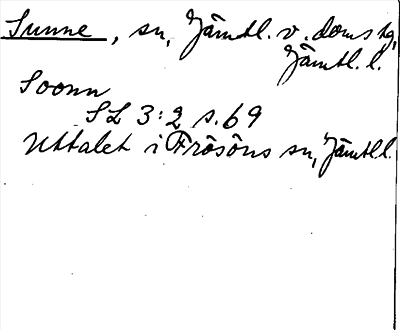 Sunne, sn, Jämtl. v. doms hg,
Jämtl. l.
Soonn
SL 3:2 s. 69
Uttalet i Frösöns sn, Jämtl l.